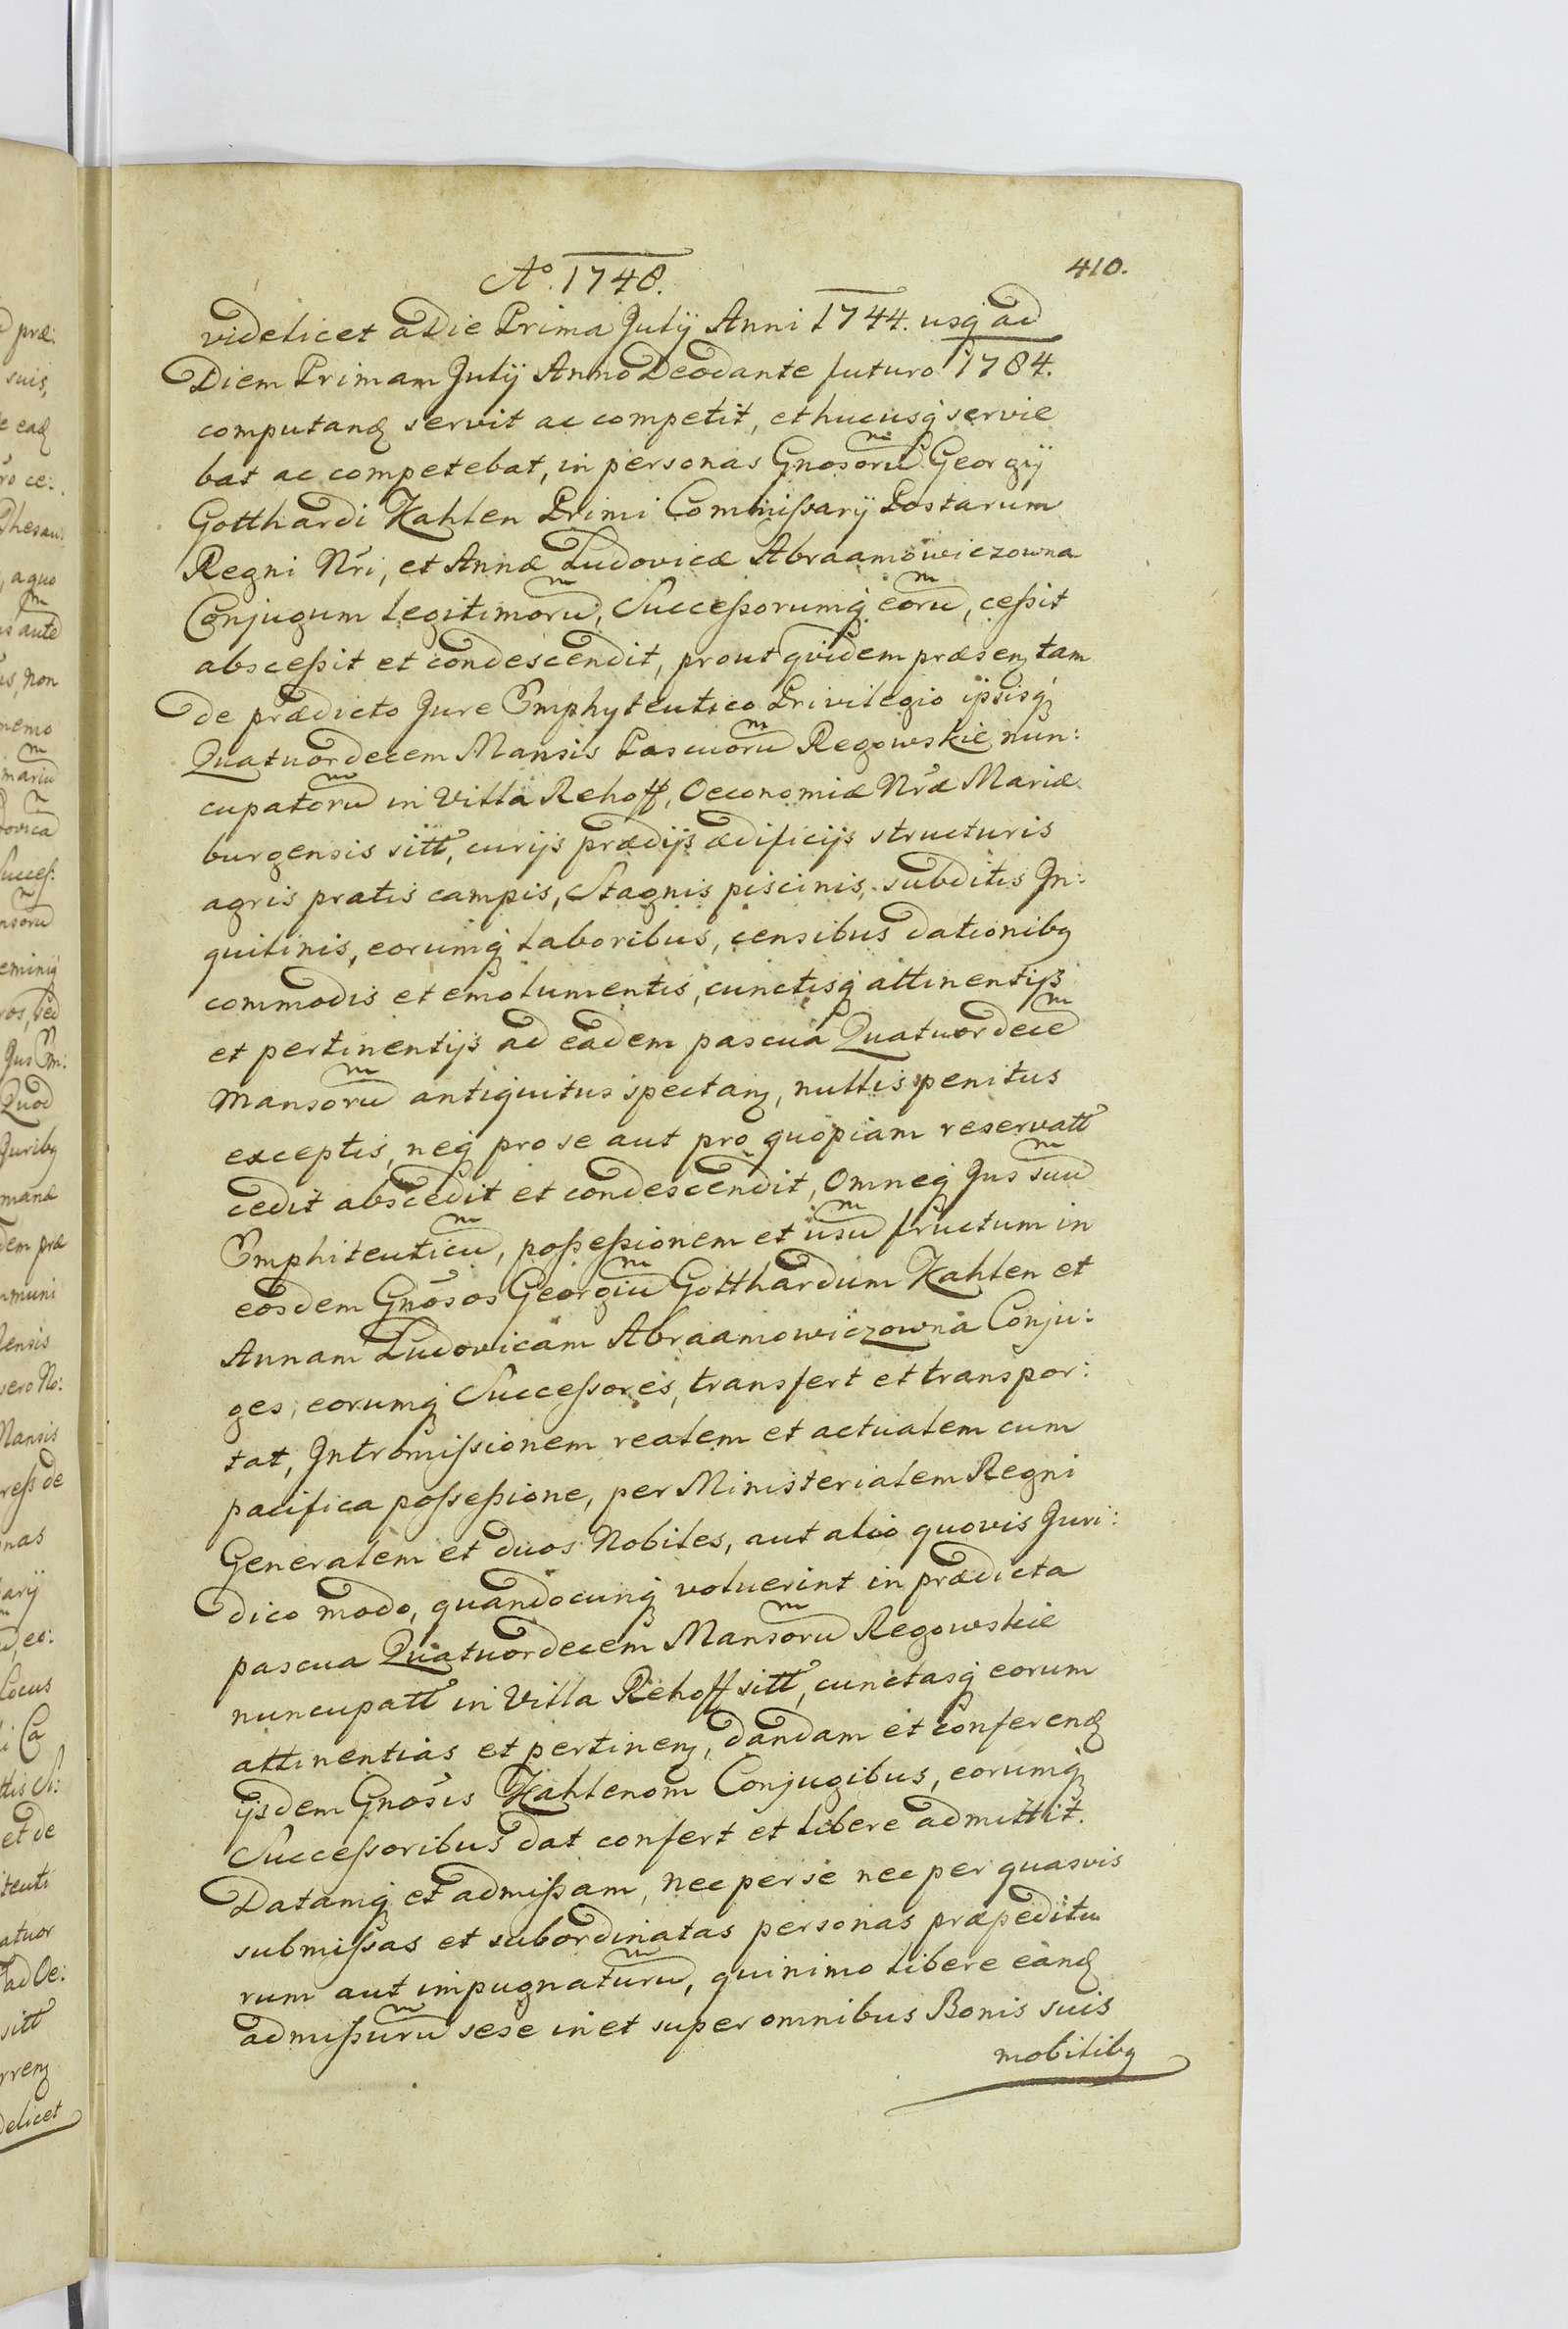 Aº. 1748.
410.
videlicet a Die Prima Julÿ Anni 1744. usq ad
Diem Primam Julÿ Anno Deo dante futuro 1784.
computanꝫ servit ac competit, et hucusq servie
bat ac competebat, in personas Gnosorum Georgÿ
Gotthardi Kahlen Primi Commißarÿ Postarum
Regni Nri, et Annæ Ludovicæ Abraamowiczowna
Conjugum legitimorum, Succeßorumq eorum, ceßit
absceßit et condescendit, prout quidem præsenꝫ tam
de prædicto Jure Emphyteutico Privilegio ipsisq
Quatuordecem Mansis Pascuorum Regowskie nun:
cupatorum in Villa Rehoff, Oeconomiæ Nræ Mariæ
burgensis sitt, curÿs prædÿs ædificÿs structuris
agris pratis campis, Stagnis piscinis, subditis In:
quilinis, eorumq laboribus, censibus dationibꝫ
commodis et emolumentis, cunctisq attinentÿs
et pertinentÿs ad eadem pascua Quatuordecem
Mansorum antiquitus spectanꝫ, nullis penitus
exceptis, neq pro se aut pro quopiam reservatt
cedit abscedit et condescendit, Omneq Jus suum
Emphiteuticum, poßeßionem et usum fructum in
eosdem Gnosos Georgium Gotthardum Kahlen et
Annam Ludovicam Abraamowiczowna Conju:
ges, eorumq Succeßores, transfert et transpor:
tat, Intromißionem realem et actualem cum
pacifica poßeßione, per Ministerialem Regni
Generalem et duos Nobiles, aut alio quovis Juri:
dico modo, quandocunq voluerint in prædicta
pascua Quatuordecem Mansorum Regowskie
nuncupatt in Villa Rehoff sitt, cunctasq eorum
attinentias et pertinenꝫ, dandam et conferenꝫ
ÿsdem Gnosis Kahlenom Conjugibus, eorumq
Succeßoribus dat confert et libere admittit.
Datamq et admißam, nec per se nec per quasvis
submißas et subordinatas personas præpeditu
rum aut impugnaturum, quinimo libere eanꝫ
admißurum sese in et super omnibus Bonis suis
mobilibꝫ